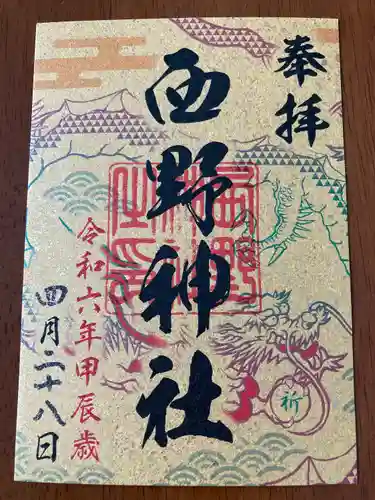 奉拝
西野神社
令和六年甲辰歳
四月二十八日
祈